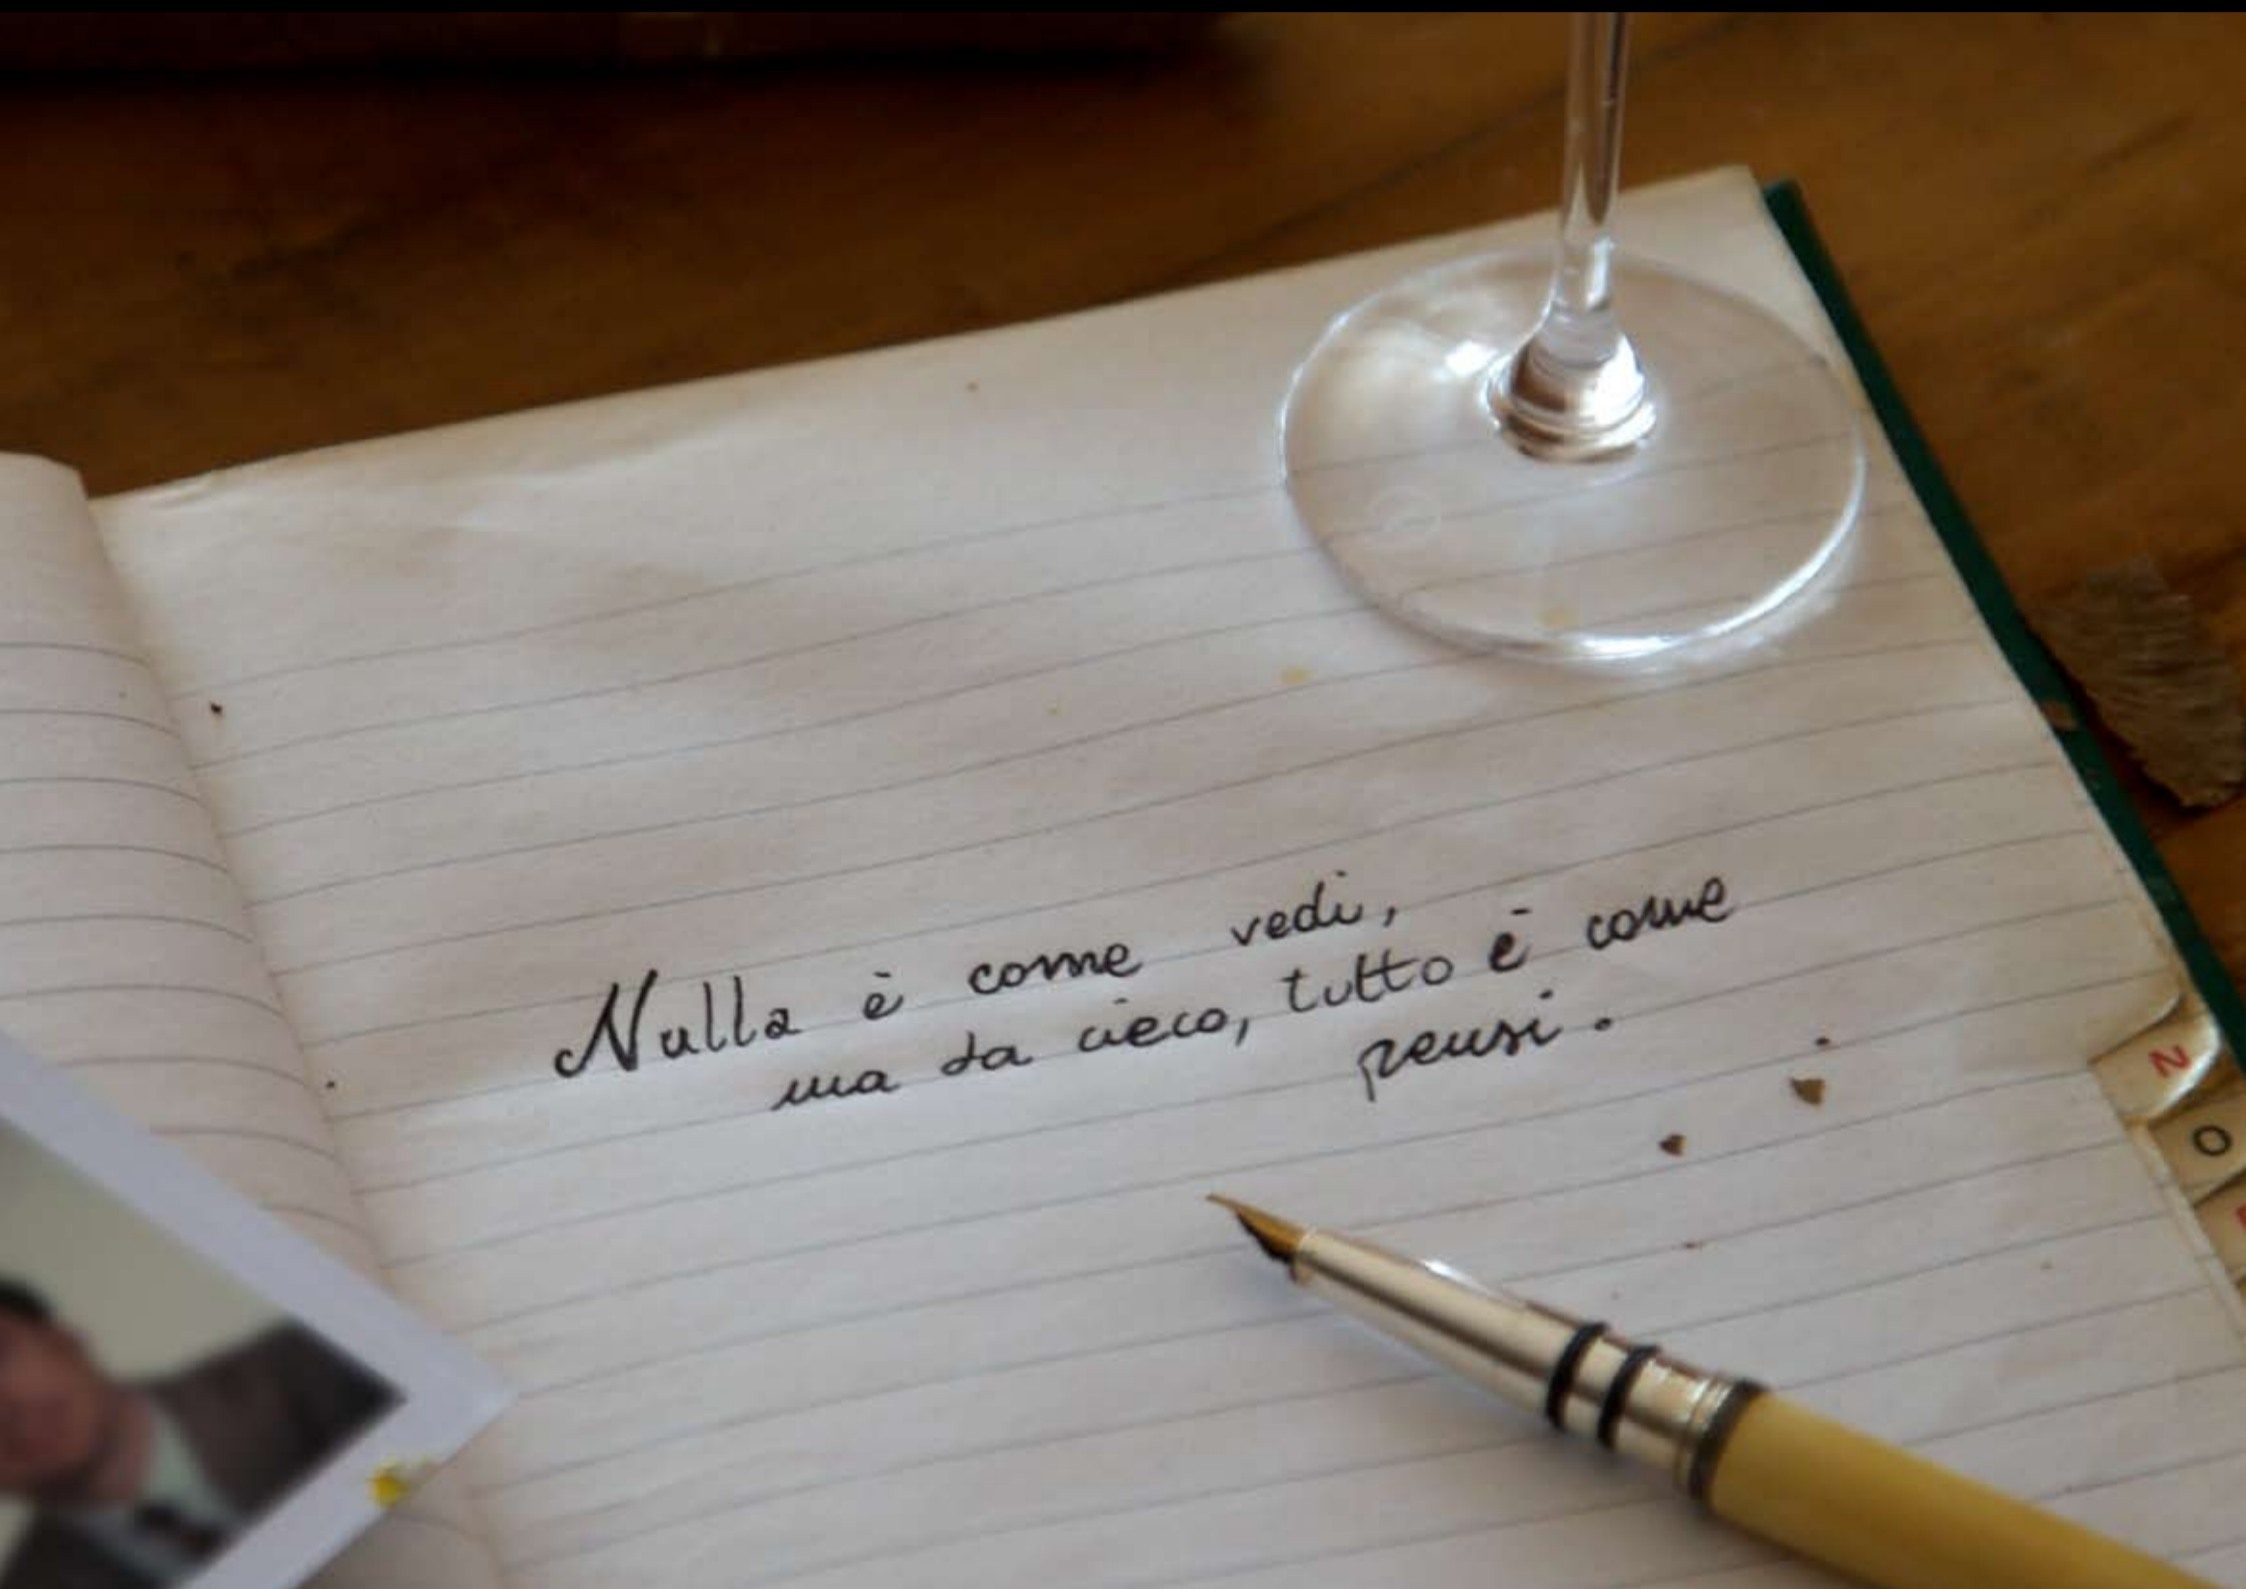 Nulla è come vedi,
ma da cieco, tutto è come
pensi.
N
O